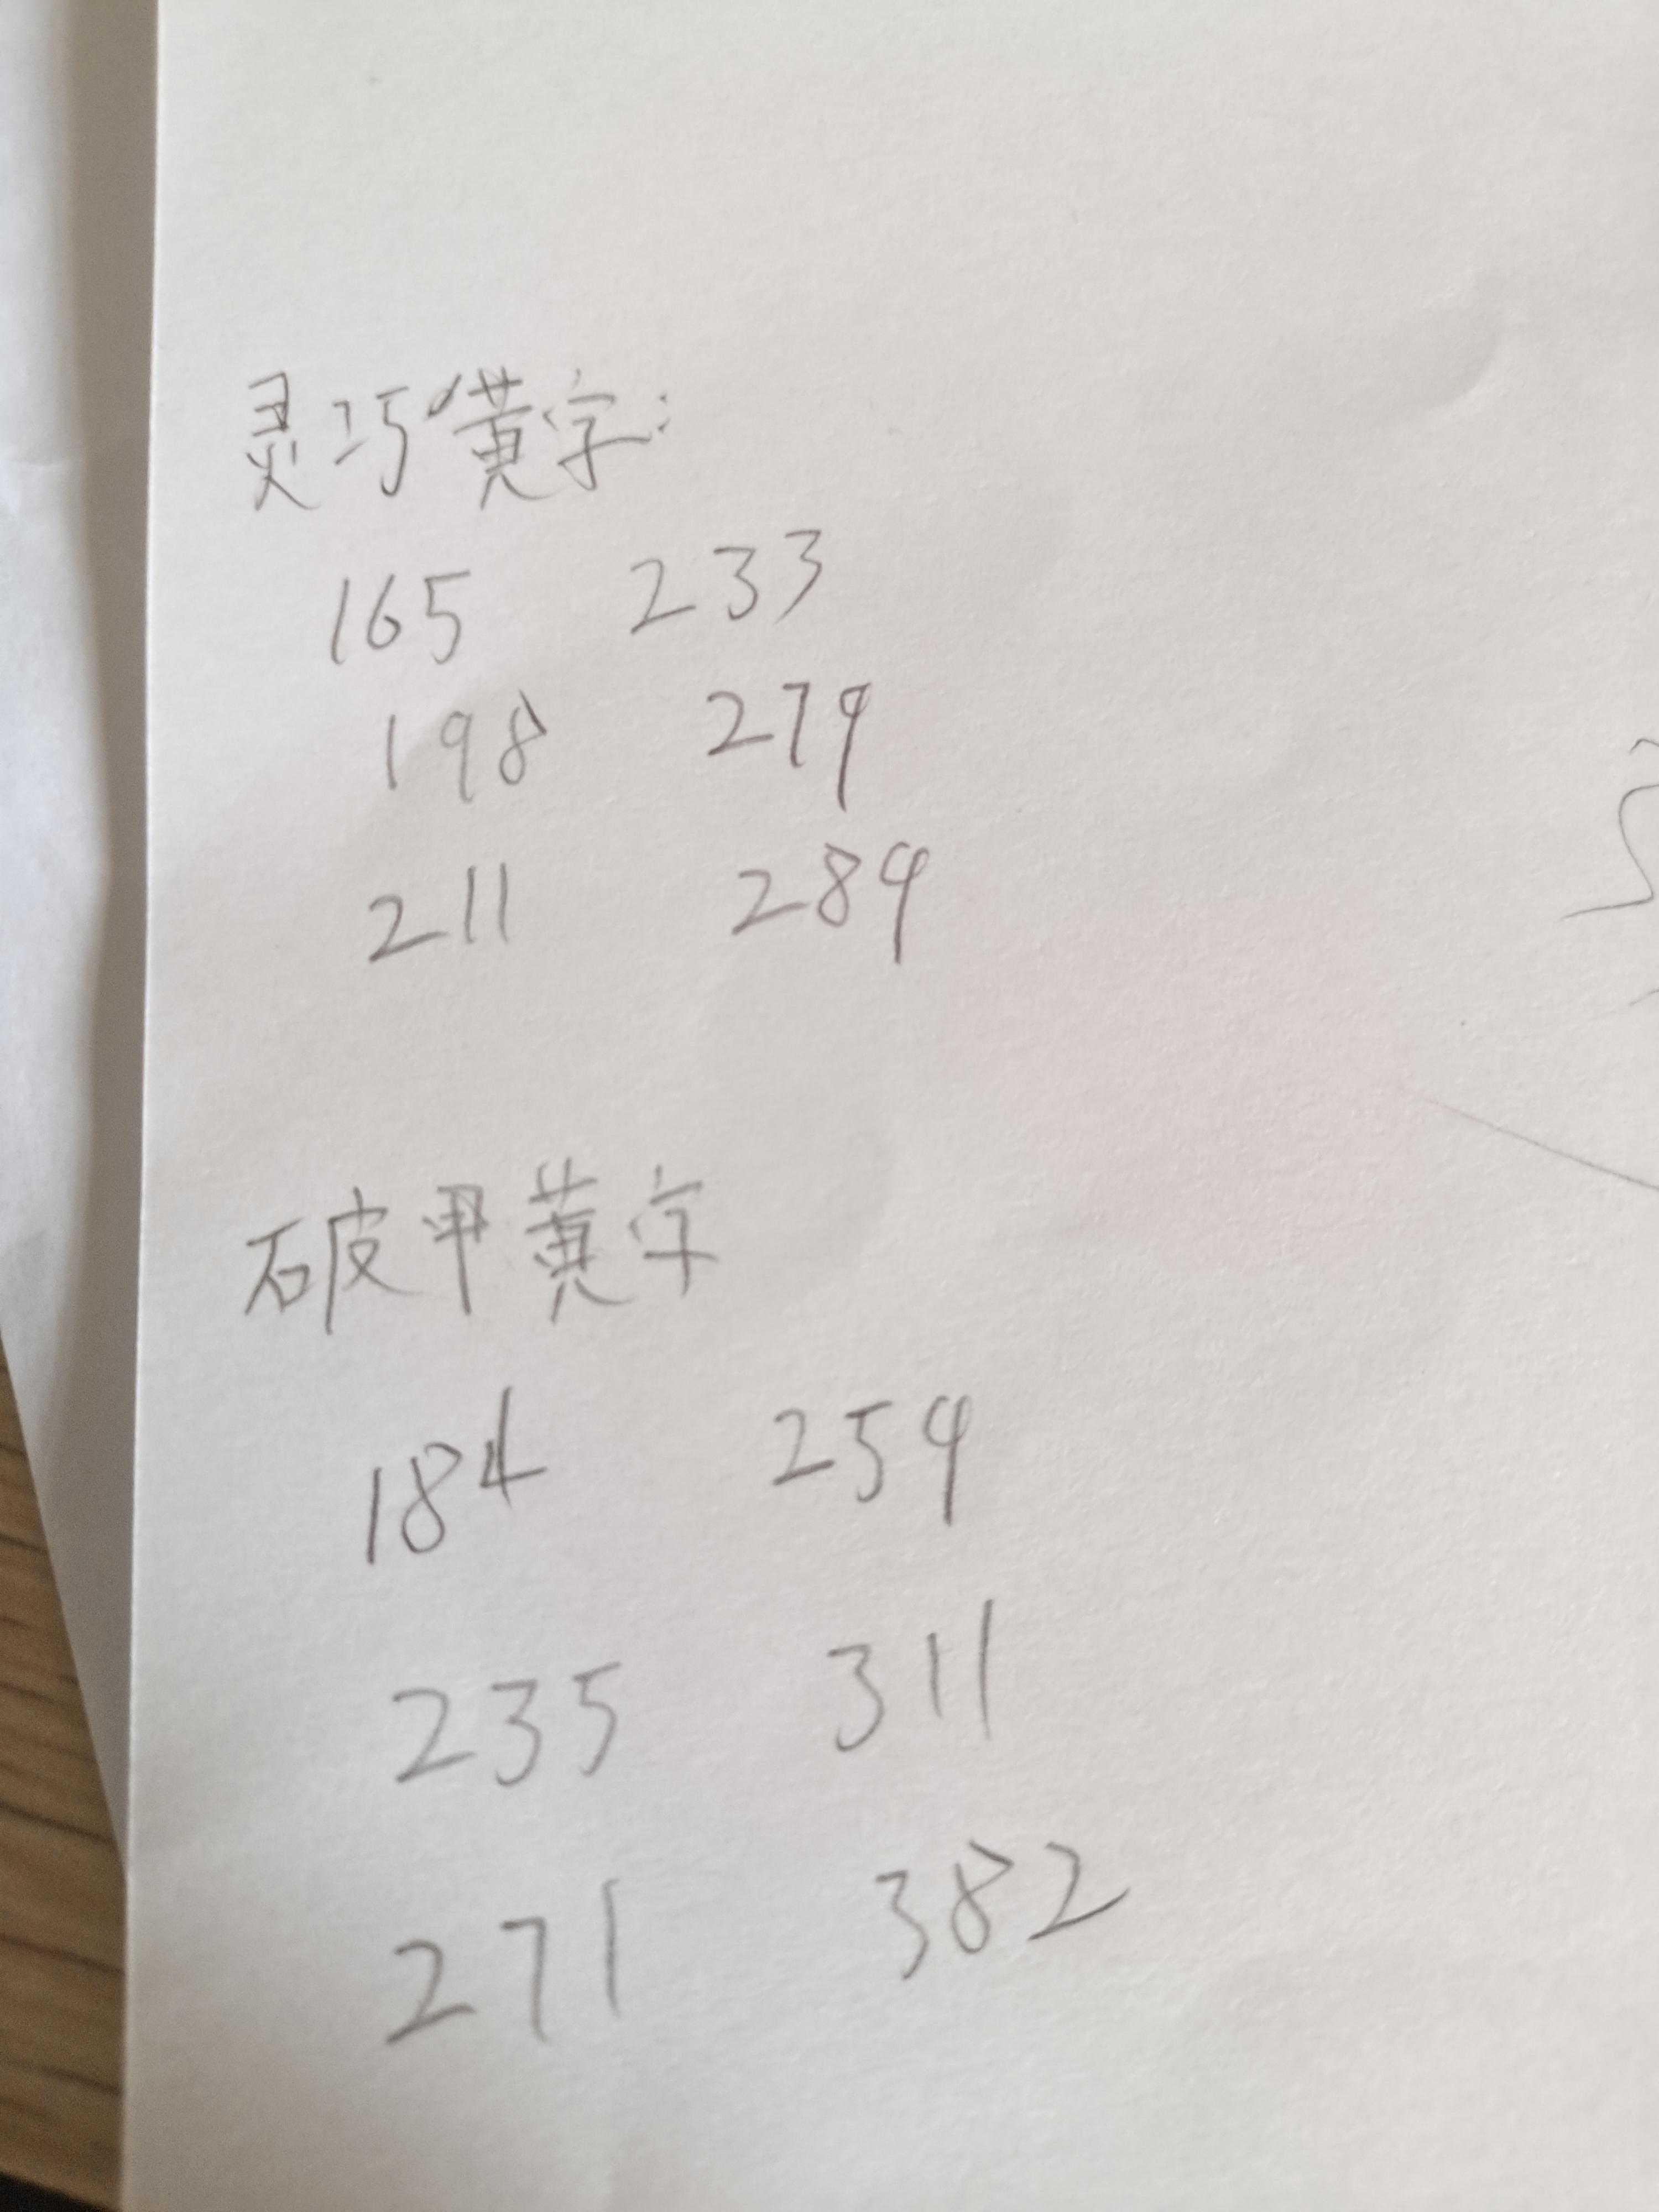 灵巧黄字:
165 233
198 279
211 289
破甲黄字
184 259
235 311
271 382